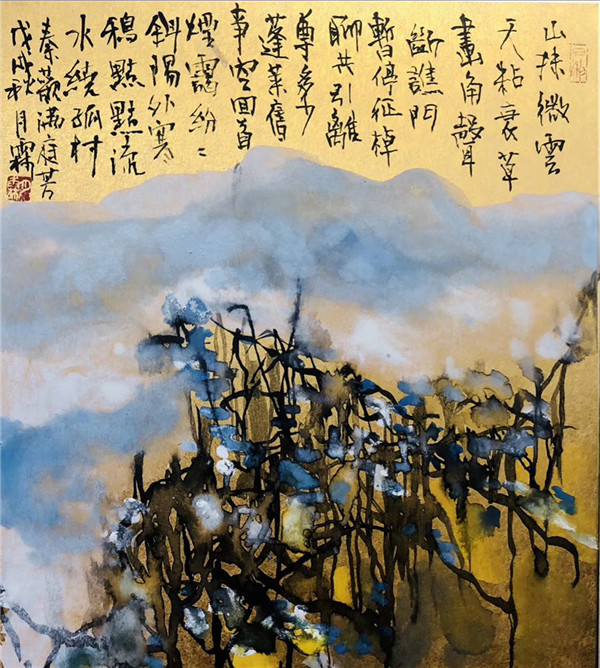 山抹微雲
天粘衰草
畫角聲
斷譙門
暫停征棹
聊共引離
尊多少
蓬萊舊
事空回首
煙靄紛〻
斜陽外寒
鴉點點流
水繞孤村
秦觀滿庭芳
戊戌秋月霖